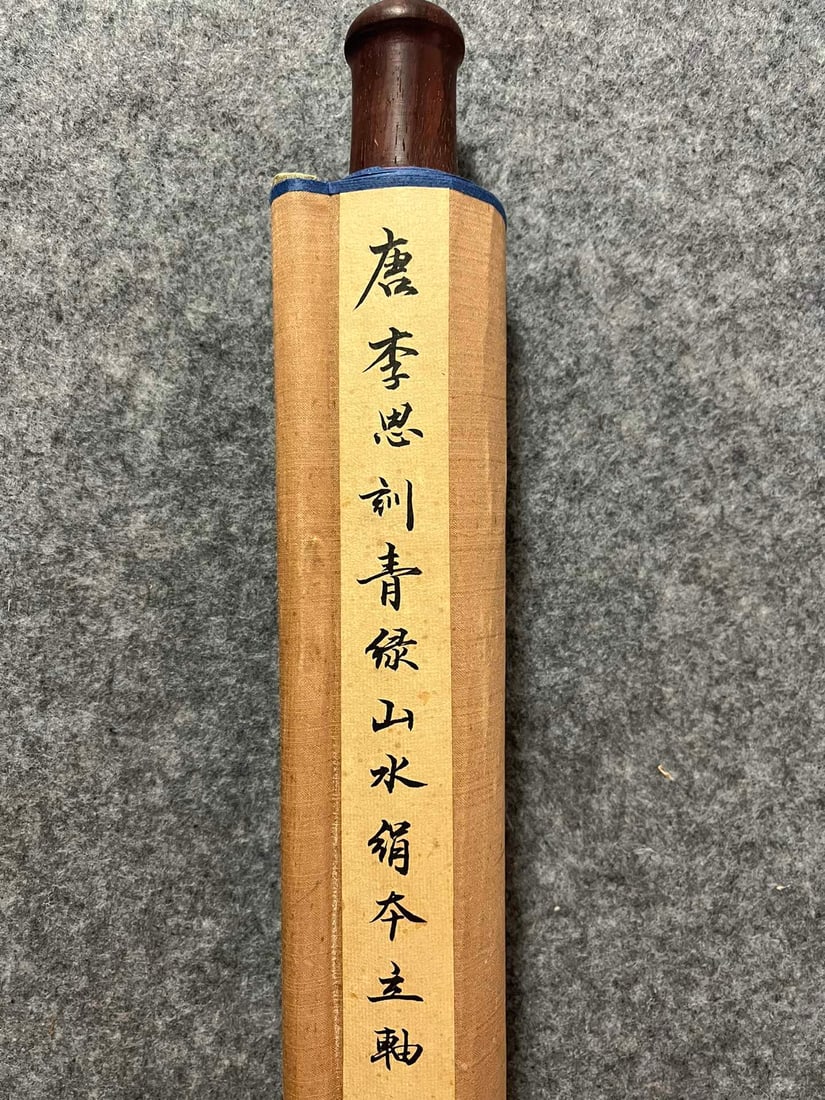 唐李思訓青绿山水绢本立軸